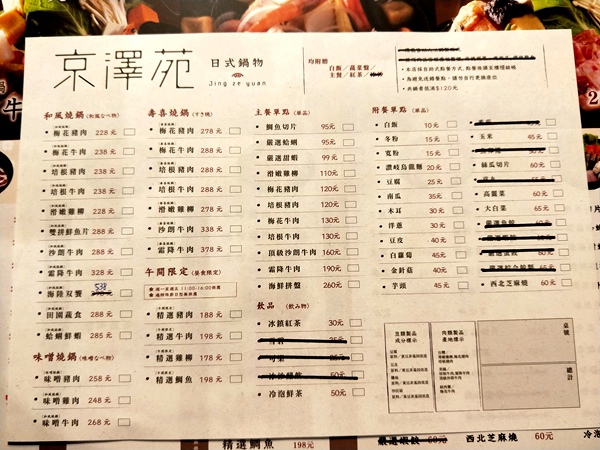 京澤苑
日式鍋物
Jing ze yuan
均附贈
白飯／蔬菜盤／
主餐／紅茶／
和風燒鍋(和風なべ物)
梅花豬肉 228元
梅花牛肉 238元
培根豬肉 238元
培根牛肉 238元
滑嫩雞柳 228元
雙拼鮮魚片 288元
沙朗牛肉 288元
霜降牛肉 328元
海陸双饗 538
田園蔬食 288元
蛤蜊鮮蝦 285元
味噌燒鍋(味噌なべ物)
味噌豬肉 258元
味噌雞肉 248元
味噌牛肉 268元
壽喜燒鍋(すき燒)
梅花豬肉 278元
梅花牛肉 288元
培根豬肉 288元
培根牛肉 288元
滑嫩雞柳 278元
沙朗牛肉 338元
霜降牛肉 378元
午間限定(晝食限定)
週一至週五 11:00-16:00供應
精選豬肉 188元
精選牛肉 198元
精選雞柳 178元
精選鯛魚 198元
主餐單點(單品)
鯛魚切片 95元
嚴選蛤蜊 95元
嚴選甜蝦 99元
滑嫩雞柳 110元
梅花豬肉 120元
培根豬肉 120元
梅花牛肉 130元
培根牛肉 130元
頂級沙朗牛肉 160元
霜降牛肉 190元
海鮮拼盤 260元
飲品(飲み物)
冰鎮紅茶 30元
冷泡鮮茶 50元
附餐單點(單品)
白飯 10元
冬粉 15元
寬粉 15元
讚岐烏龍麵 20元
豆腐 25元
南瓜 35元
木耳 30元
洋蔥 30元
豆皮 40元
白蘿蔔 45元
金針菇 40元
芋頭 45元
玉米 45元
絲瓜切片 60元
高麗菜 60元
大白菜 65元
西北芝麻燒 60元
豆類製品
成分標示
肉類製品
產地標示
桌號
總計
精選鯛魚 198元
西北芝麻燒 60元